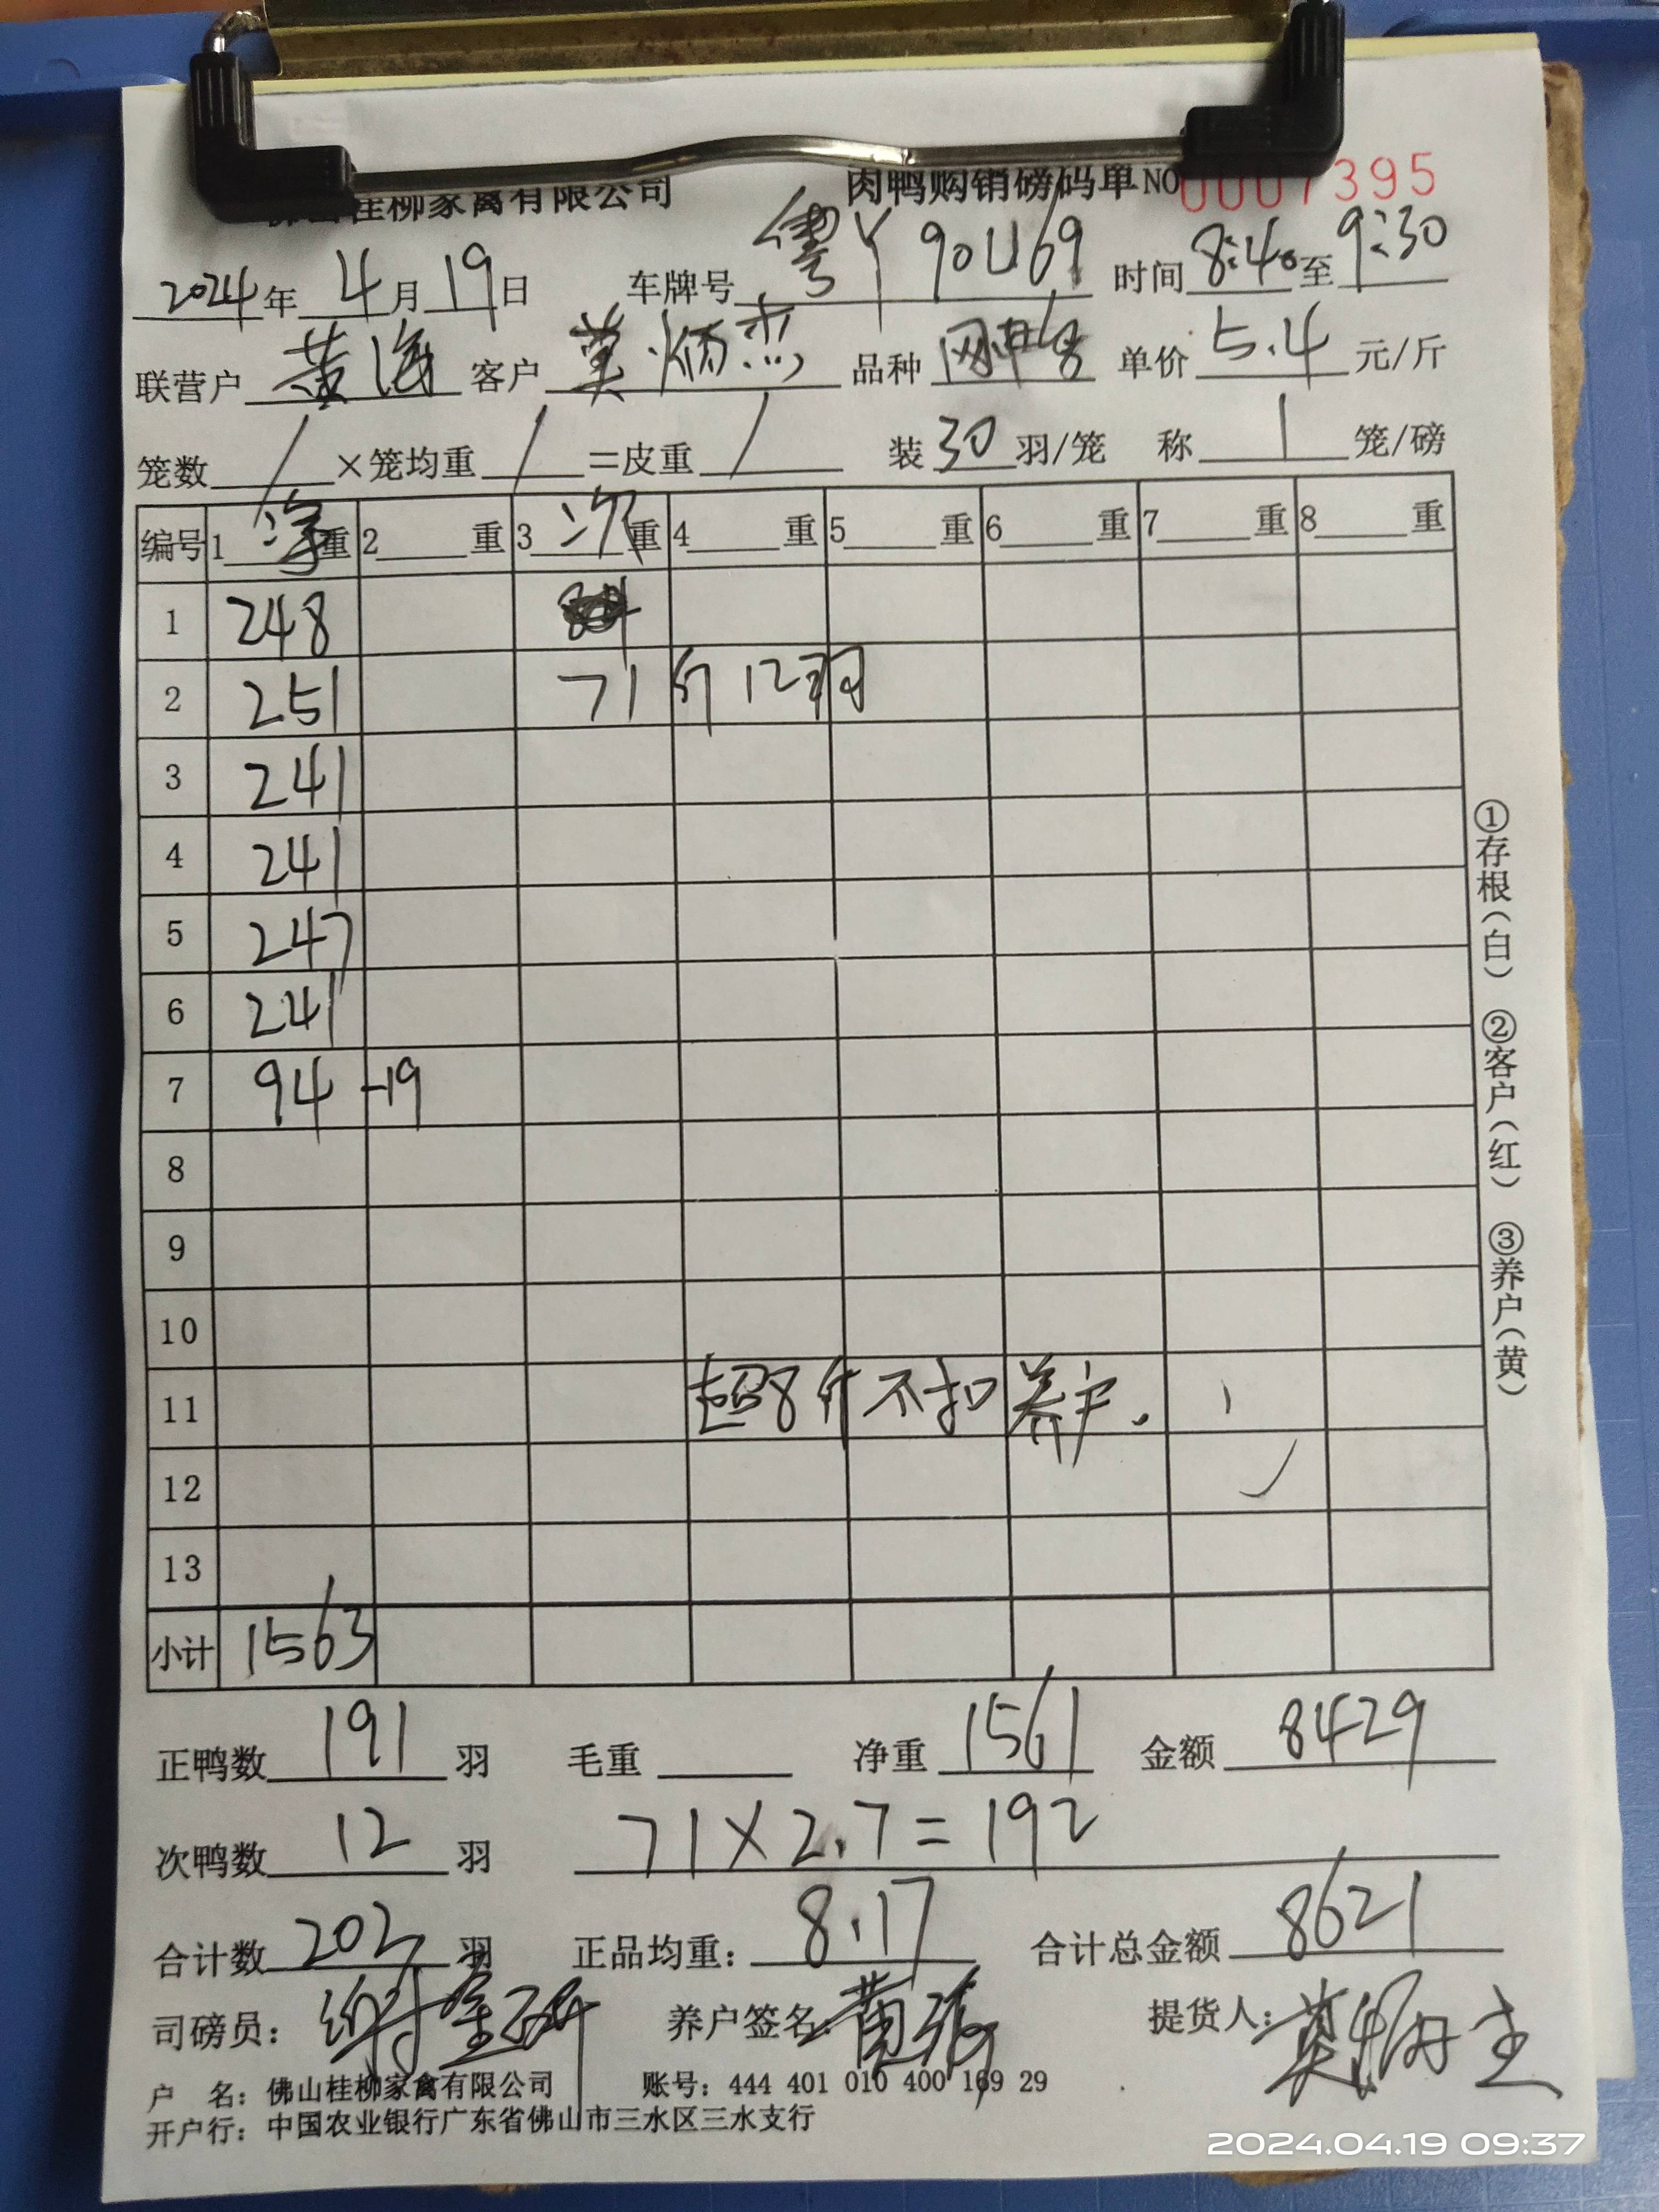 佛山桂柳家禽有限公司 肉鸭购销磅码单 NO 0007395
2024年 4月 19日 车牌号 粤Y 90U69 时间 8:40 至 9:30
联营户 黄海 客户 莫炳杰 品种 单价 5.4 元/斤
笼数 / ×笼均重 / =皮重 / 装 30 羽/笼 称 1 笼/磅
编号 1 净重 2 重 3 次重 4 重 5 重 6 重 7 重 8 重
1 248
2 251 71斤12羽
3 241
4 241
5 247
6 241
7 94 -19
8
9
10
11 超8斤不扣养户.
12
13
小计 1563
正鸭数 191 羽 毛重 净重 1561 金额 8429
次鸭数 12 羽 71×2.7=192
合计数 203 羽 正品均重: 8.17 合计总金额 8621
司磅员: 养户签名: 黄海 提货人:
户 名: 佛山桂柳家禽有限公司 账号: 444 401 010 400 169 29
开户行: 中国农业银行广东省佛山市三水区三水支行
①存根(白) ②客户(红) ③养户(黄)
2024.04.19 09:37